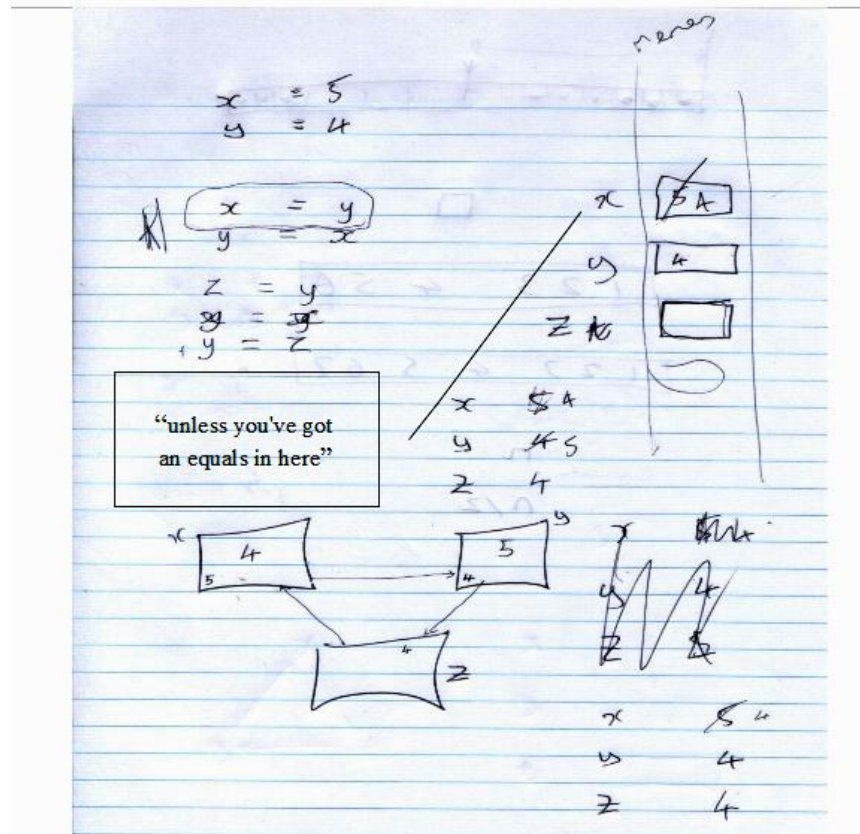 x = 5
y = 4
x = y
y = x
z = y
y = z
x 5 4
y 4
z
“unless you've got
an equals in here”
x 5 4
y 4 5
z 4
x 4 5
y 5 4
4 z
x
y 4
z
x 5 4
y 4
z 4